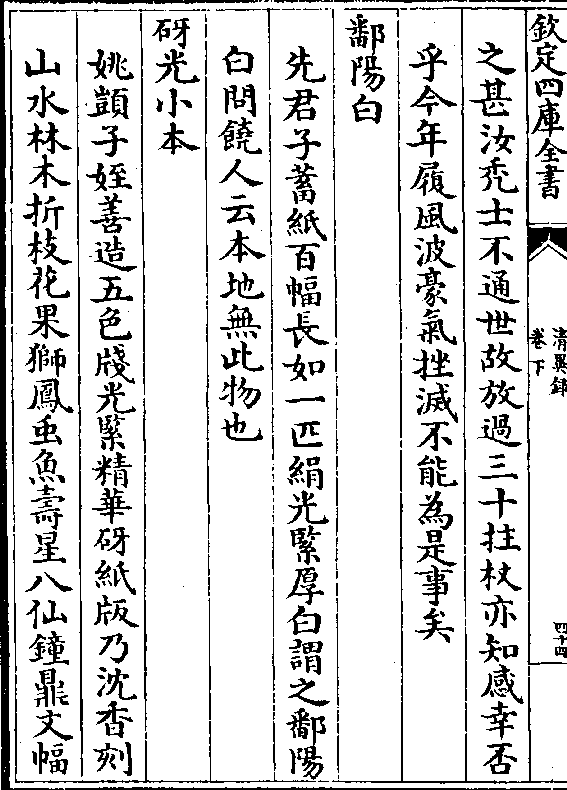 欽定四庫全書
清異録
卷下
四十四
之甚汝禿士不通世故放過三十拄杖亦知感幸否
乎今年履風波豪氣挫滅不能為是事矣
鄱陽白
先君子蓄紙百幅長如一匹絹光緊厚白謂之鄱陽
白問饒人云本地無此物也
砑光小本
姚顗子姪善造五色牋光緊精華砑紙版乃沈香刻
山水林木折枝花果獅鳳虫魚壽星八仙鐘鼎文幅